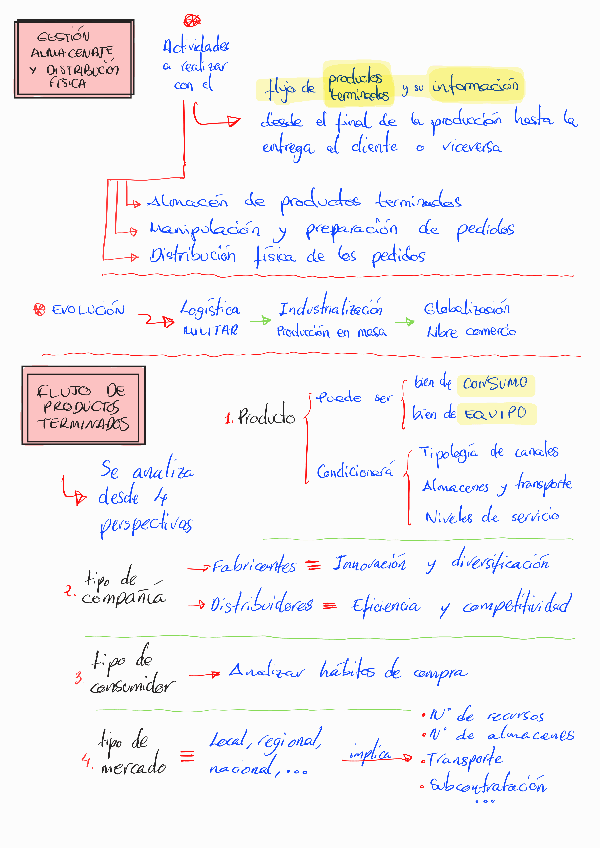 GESTIÓN
ALMACENAJE
Y DISTRIBUCIÓN
FÍSICA
Actividades
a realizar
con el
flujo de productos terminados y su información
desde el final de la producción hasta la
entrega al cliente o viceversa
Almacén de productos terminados
Manipulación y preparación de pedidos
Distribución física de los pedidos
EVOLUCIÓN
Logística
MILITAR
Industrialización
Producción en masa
Globalización
Libre comercio
FLUJO DE
PRODUCTOS
TERMINADOS
Se analiza
desde 4
perspectivas
1. Producto
Puede ser
bien de CONSUMO
bien de EQUIPO
Condicionará
Tipología de canales
Almacenes y transporte
Niveles de servicio
2. tipo de
compañía
Fabricantes = Innovación y diversificación
Distribuidores = Eficiencia y competitividad
3 tipo de
consumidor
Analizar hábitos de compra
4. tipo de
mercado
Local, regional,
nacional, ...
implica
• Nº de recursos
• Nº de almacenes
• Transporte
• Subcontratación
...